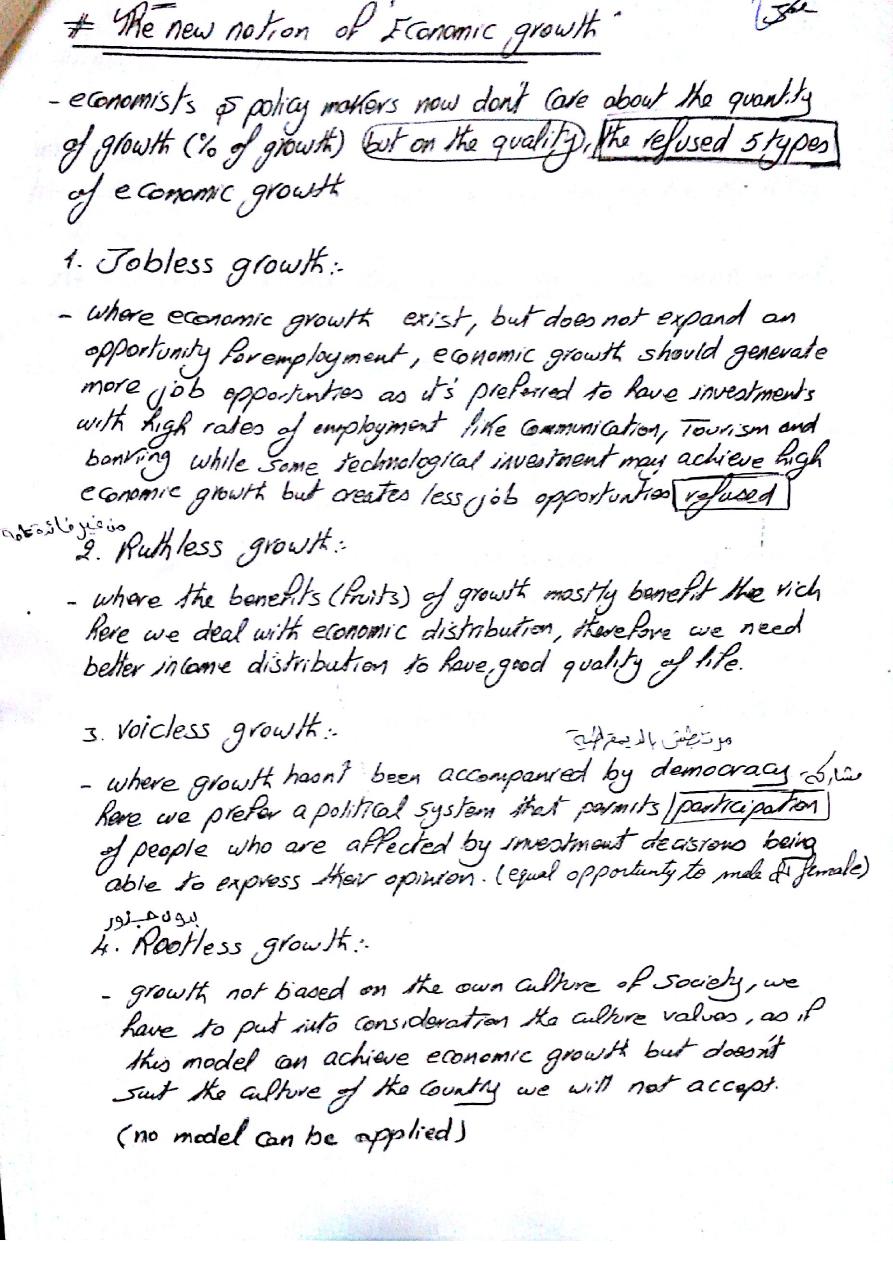 # The new notion of "Economic growth"
- economists & policy makers now don't care about the quantity
of growth (% of growth) but on the quality, the refused 5 types
of economic growth
1. Jobless growth:-
- where economic growth exist, but does not expand an
opportunity for employment, economic growth should generate
more job opportunties as it's preferred to have investments
with high rates of employment like communication, Tourism and
banking while some technological investment may achieve high
economic growth but creates less job opportunties refused
من غير فائدة عامة
2. Ruthless growth:-
- where the benefits (fruits) of growth mostly benefit the rich
here we deal with economic distribution, therefore we need
better income distribution to have good quality of life.
3. Voicless growth:-
بالديمقراطية
- where growth hasn't been accompanied by democracy مشاركة
here we prefer a political system that permits participation
of people who are affected by investment decisions being
able to express their opinion. (equal opportunity to male & female)
بدون جذور
4. Rootless growth:-
- growth not based on the own culture of society, we
have to put into consideration the culture values, as if
this model can achieve economic growth but doesn't
suit the culture of the country we will not accept.
(no model can be applied)